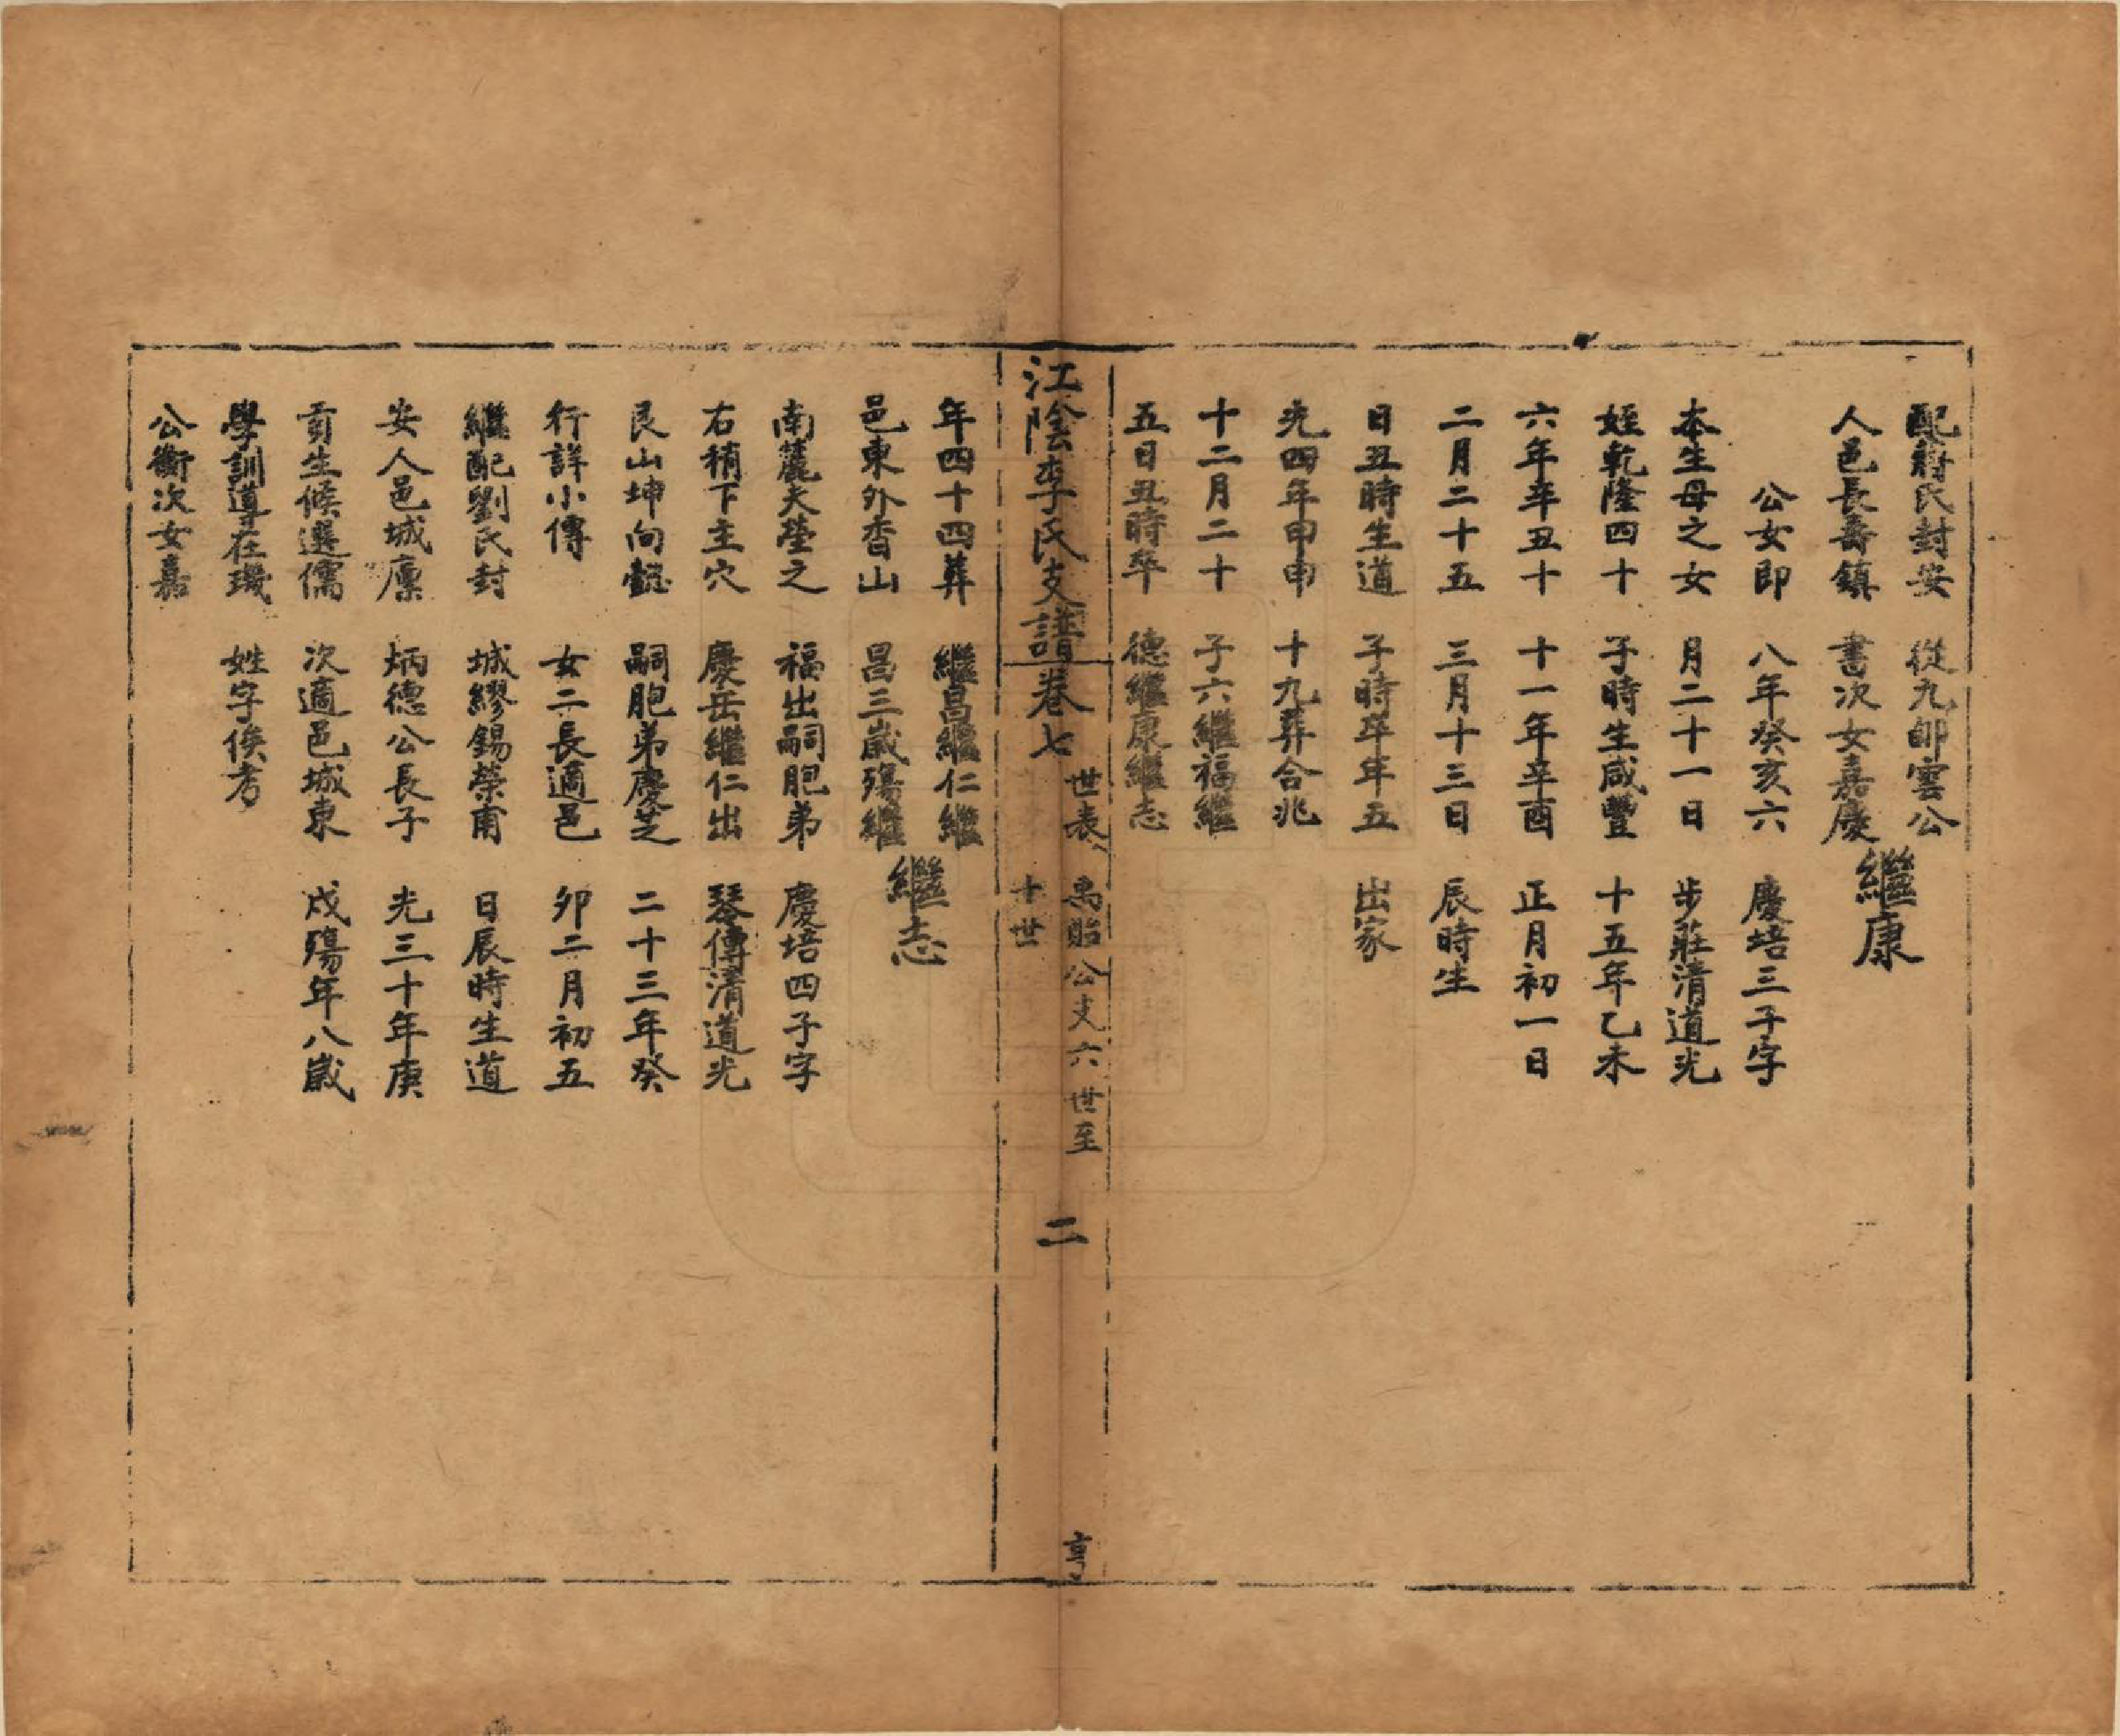 配尉氏封安
人邑長壽鎮
公女即
本生母之女
姪乾隆四十
六年辛丑十
二月二十五
日丑時生道
光四年甲申
十二月二十
五日丑時卒
從九郎雲公
書次女嘉慶
八年癸亥六
月二十一日
子時生咸豐
十一年辛酉
三月十三日
子時卒年五
十九葬合兆
子六繼福繼
德繼康繼志
繼康
慶培三子字
步莊清道光
十五年乙未
正月初一日
辰時生
出家
江陰李氏支譜卷七
世表
禹貽公支六世至
十世
二
亨
年四十四葬
邑東外杏山
南麓夫塋之
右稍下主穴
艮山坤向懿
行詳小傳
繼配劉氏封
安人邑城廩
貢生候選儒
學訓導在璣
公衡次女嘉
繼昌繼仁繼
昌三歲殤繼
福出嗣胞弟
慶岳繼仁出
嗣胞弟慶芝
女二長適邑
城繆錫榮甫
炳德公長子
次適邑城東
姓字俟考
繼志
慶培四子字
琴傳清道光
二十三年癸
卯二月初五
日辰時生道
光三十年庚
戌殤年八歲